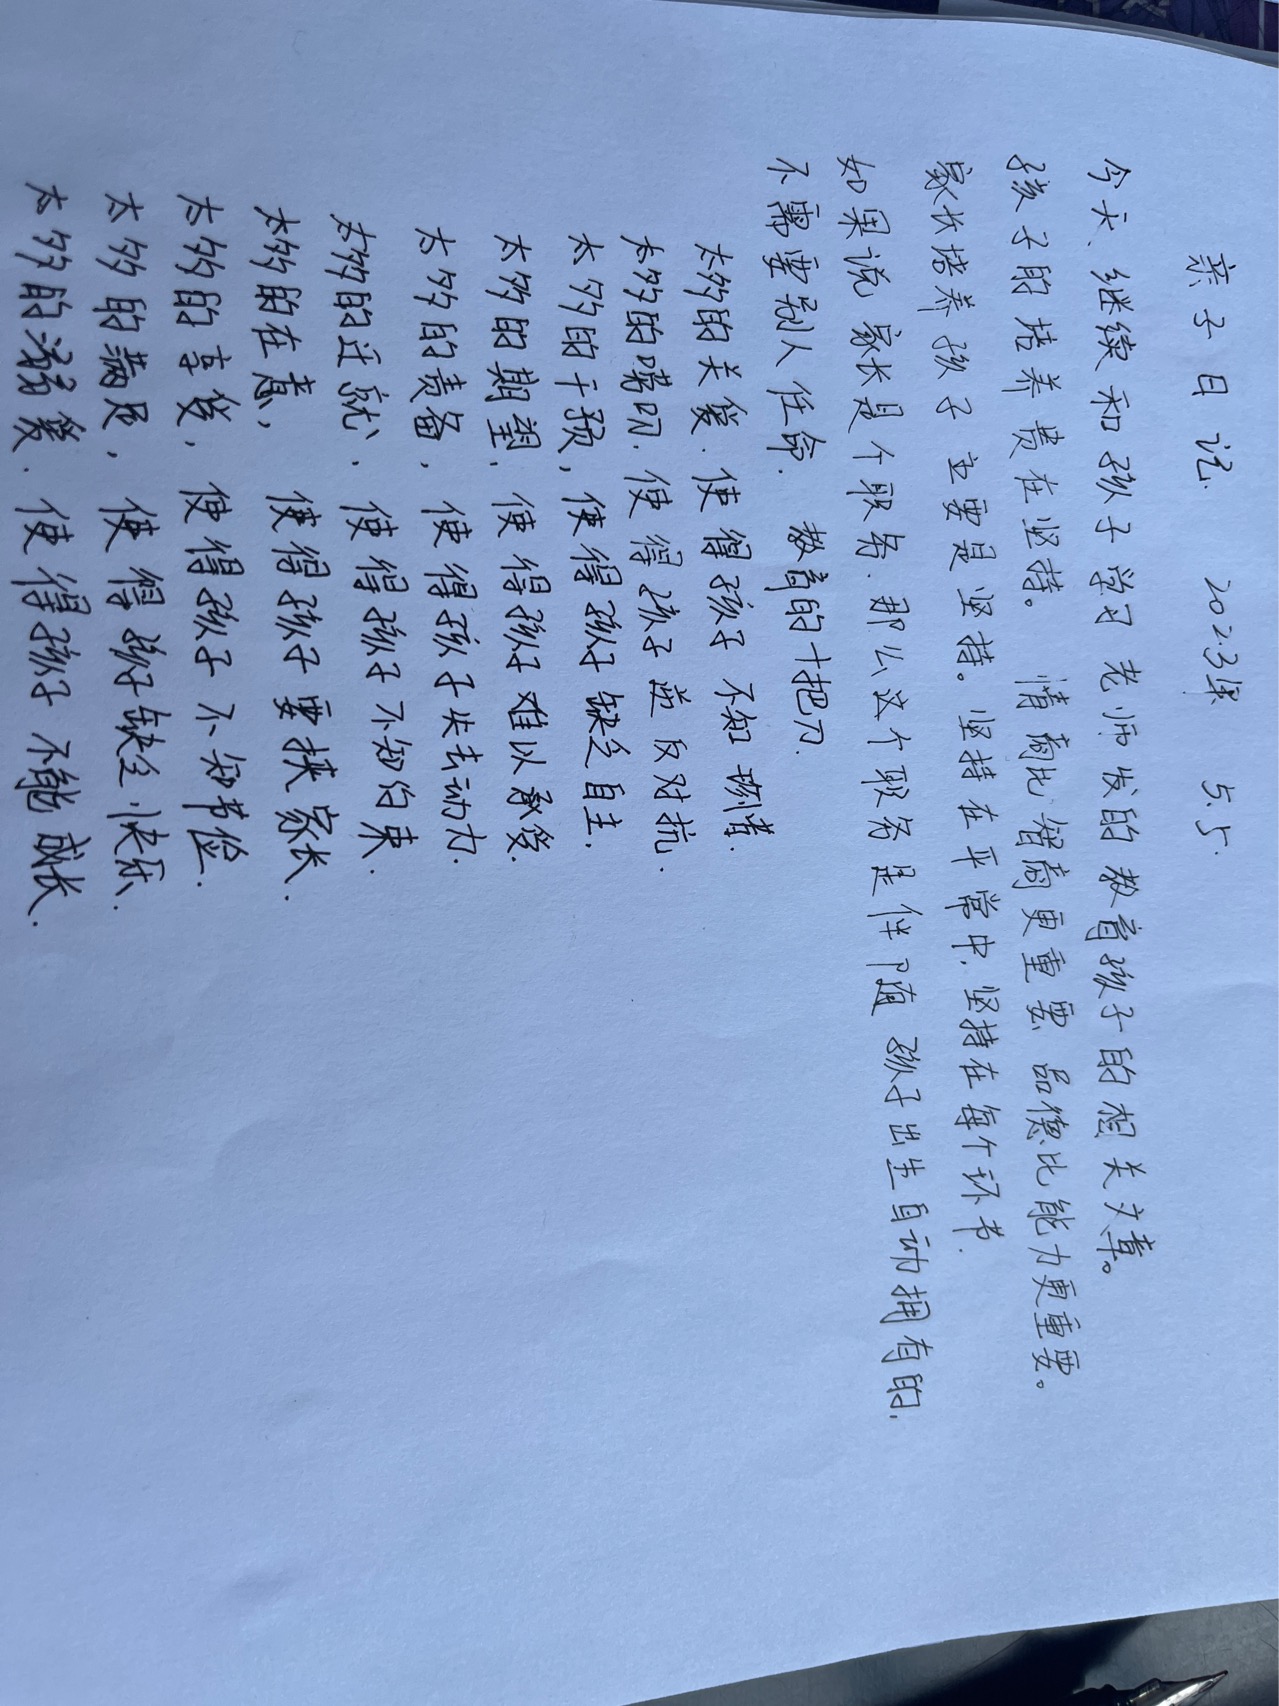 亲子日记. 2023年 5.5.
今天、继续和孩子学习老师发的教育孩子的相关文章。
孩子的培养贵在坚持。情商比智商更重要 品德比能力更重要。
家长培养孩子 主要是坚持。坚持在平常中,坚持在每个环节.
如果说家长是个职务.那么这个职务是伴随孩子出生自动拥有的,
不需要别人任命. 教育的十把刀.
太多的关爱.使得孩子不知珍惜.
太多的嘱叨.使得孩子逆反对抗.
太多的干预,使得孩子缺乏自主.
太多的期望,使得孩子难以承受.
太多的责备,使得孩子失去动力.
太多的迁就、使得孩子不知约束.
太多的在意,使得孩子要挟家长.
太多的享受,使得孩子不知节俭.
太多的满足,使得孩子缺乏快乐.
太多的溺爱.使得孩子不能成长.